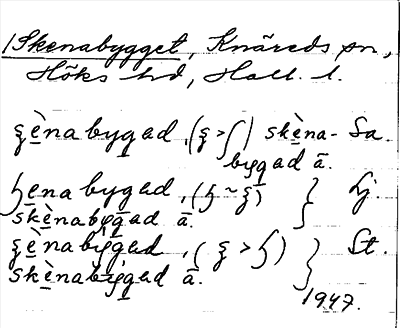 /Skenabygget, Knäreds sn,
Höks hd, Hall. l.
ʂènabygad, (ʂ > ʃ) skèna- Sa.
bygad ā.
ɧenabygad, (ɧ ~ ʂ) } Lj.
skènabygad ā.
ʂènabygad, (ʂ > ɧ) } St.
skènabygad ā.
1947.